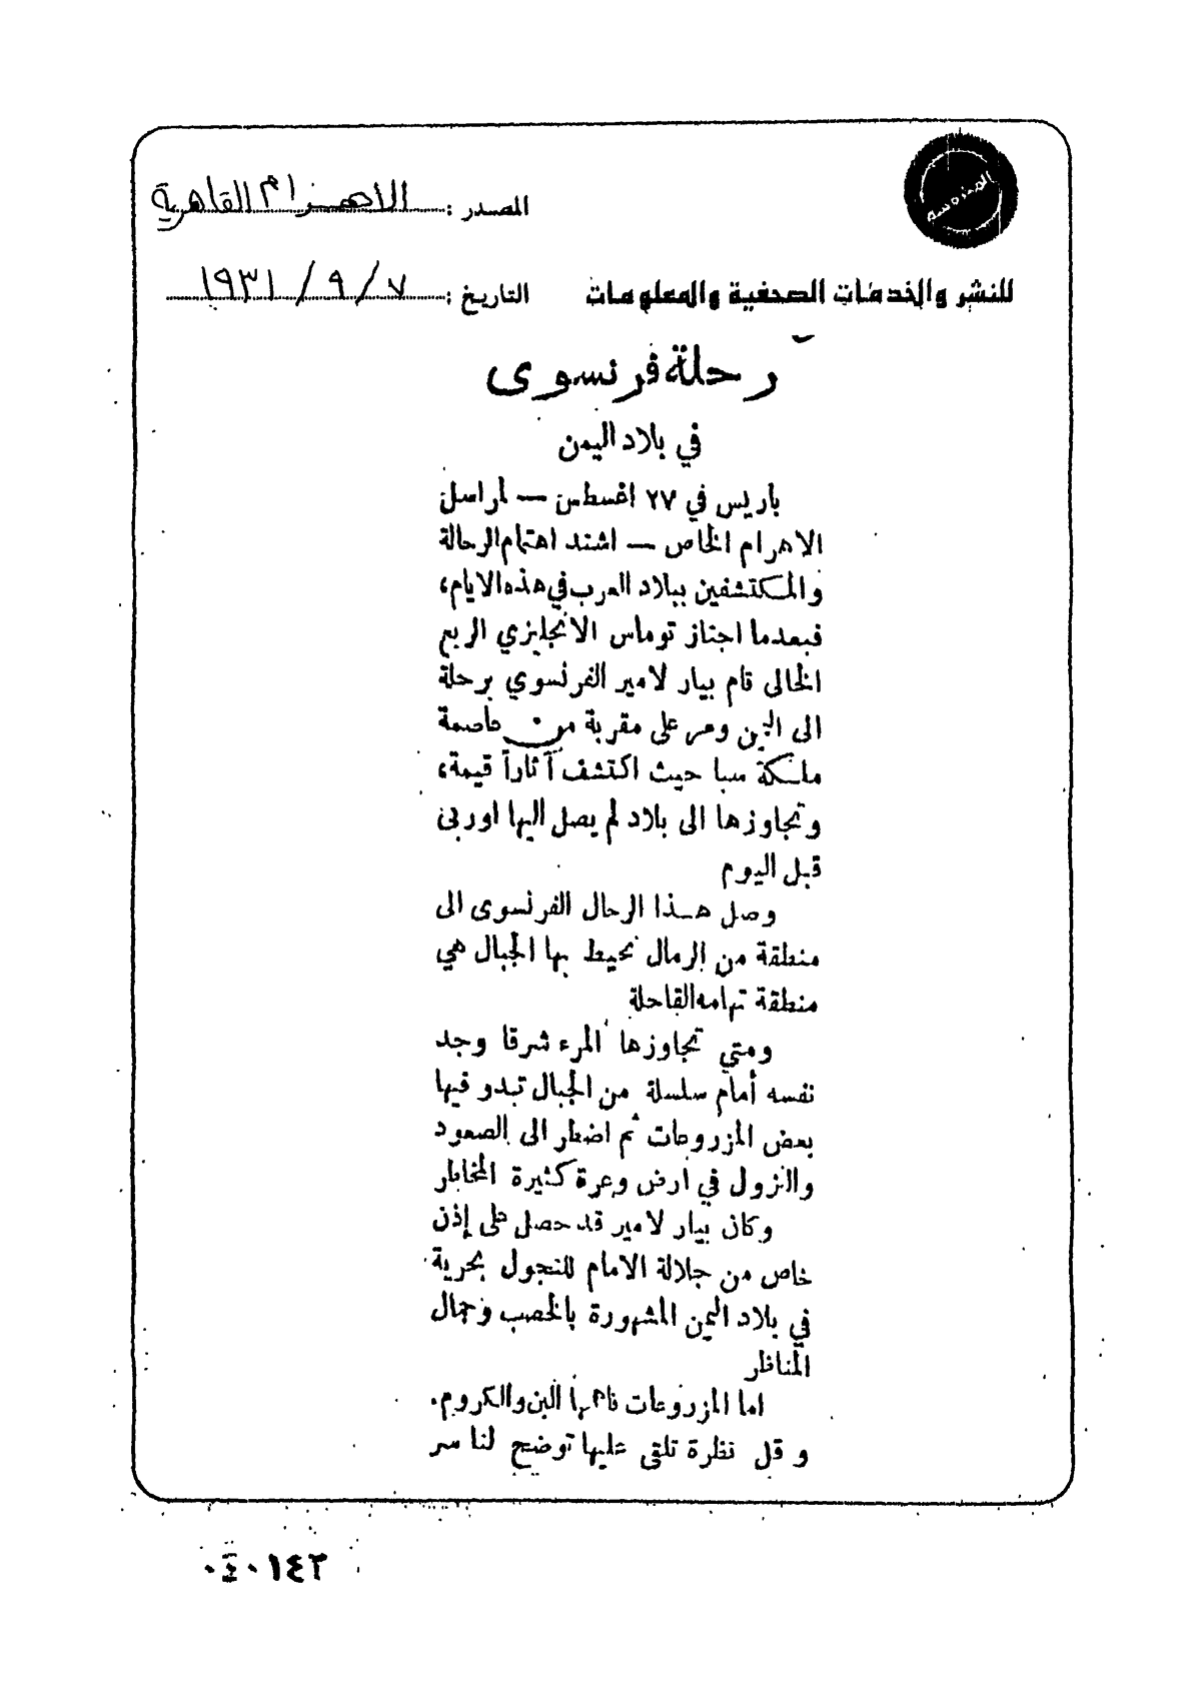 المحروسة
المصدر : الاهرام القاهرية
للنشر والخدمات الصحفية والمعلومات
التاريخ : ٧ / ٩ / ١٩٣١
رحلة فرنسوى
في بلاد اليمن
باريس في ٢٧ اغسطس — لمراسل
الاهرام الخاص — اشتد اهتمام الرحالة
والمكتشفين ببلاد العرب في هذه الايام،
فبعدما اجتاز توماس الانجليزي الربع
الخالى قام بيار لامير الفرنسوي برحلة
الى اليمن ومر على مقربة من عاصمة
مملكة سبا حيث اكتشف آثاراً قيمة،
وتجاوزها الى بلاد لم يصل اليها اوربى
قبل اليوم
وصل هـذا الرحال الفرنسوى الى
منطقة من الرمال تحيط بها الجبال هي
منطقة تهامه القاحلة
ومتي تجاوزها المرء شرقا وجد
نفسه أمام سلسلة من الجبال تبدو فيها
بعض المزروعات ثم اضطر الى الصعود
والنزول في ارض وعرة كثيرة المخاطر
وكان بيار لامير قد حصل على إذن
خاص من جلالة الامام للتجول بحرية
في بلاد اليمن المشهورة بالخصب وجمال
المناظر
اما المزروعات فاهمها البن والكروم.
و قل نظرة تلقى عليها توضح لنا سر
٠٤٠١٤٢